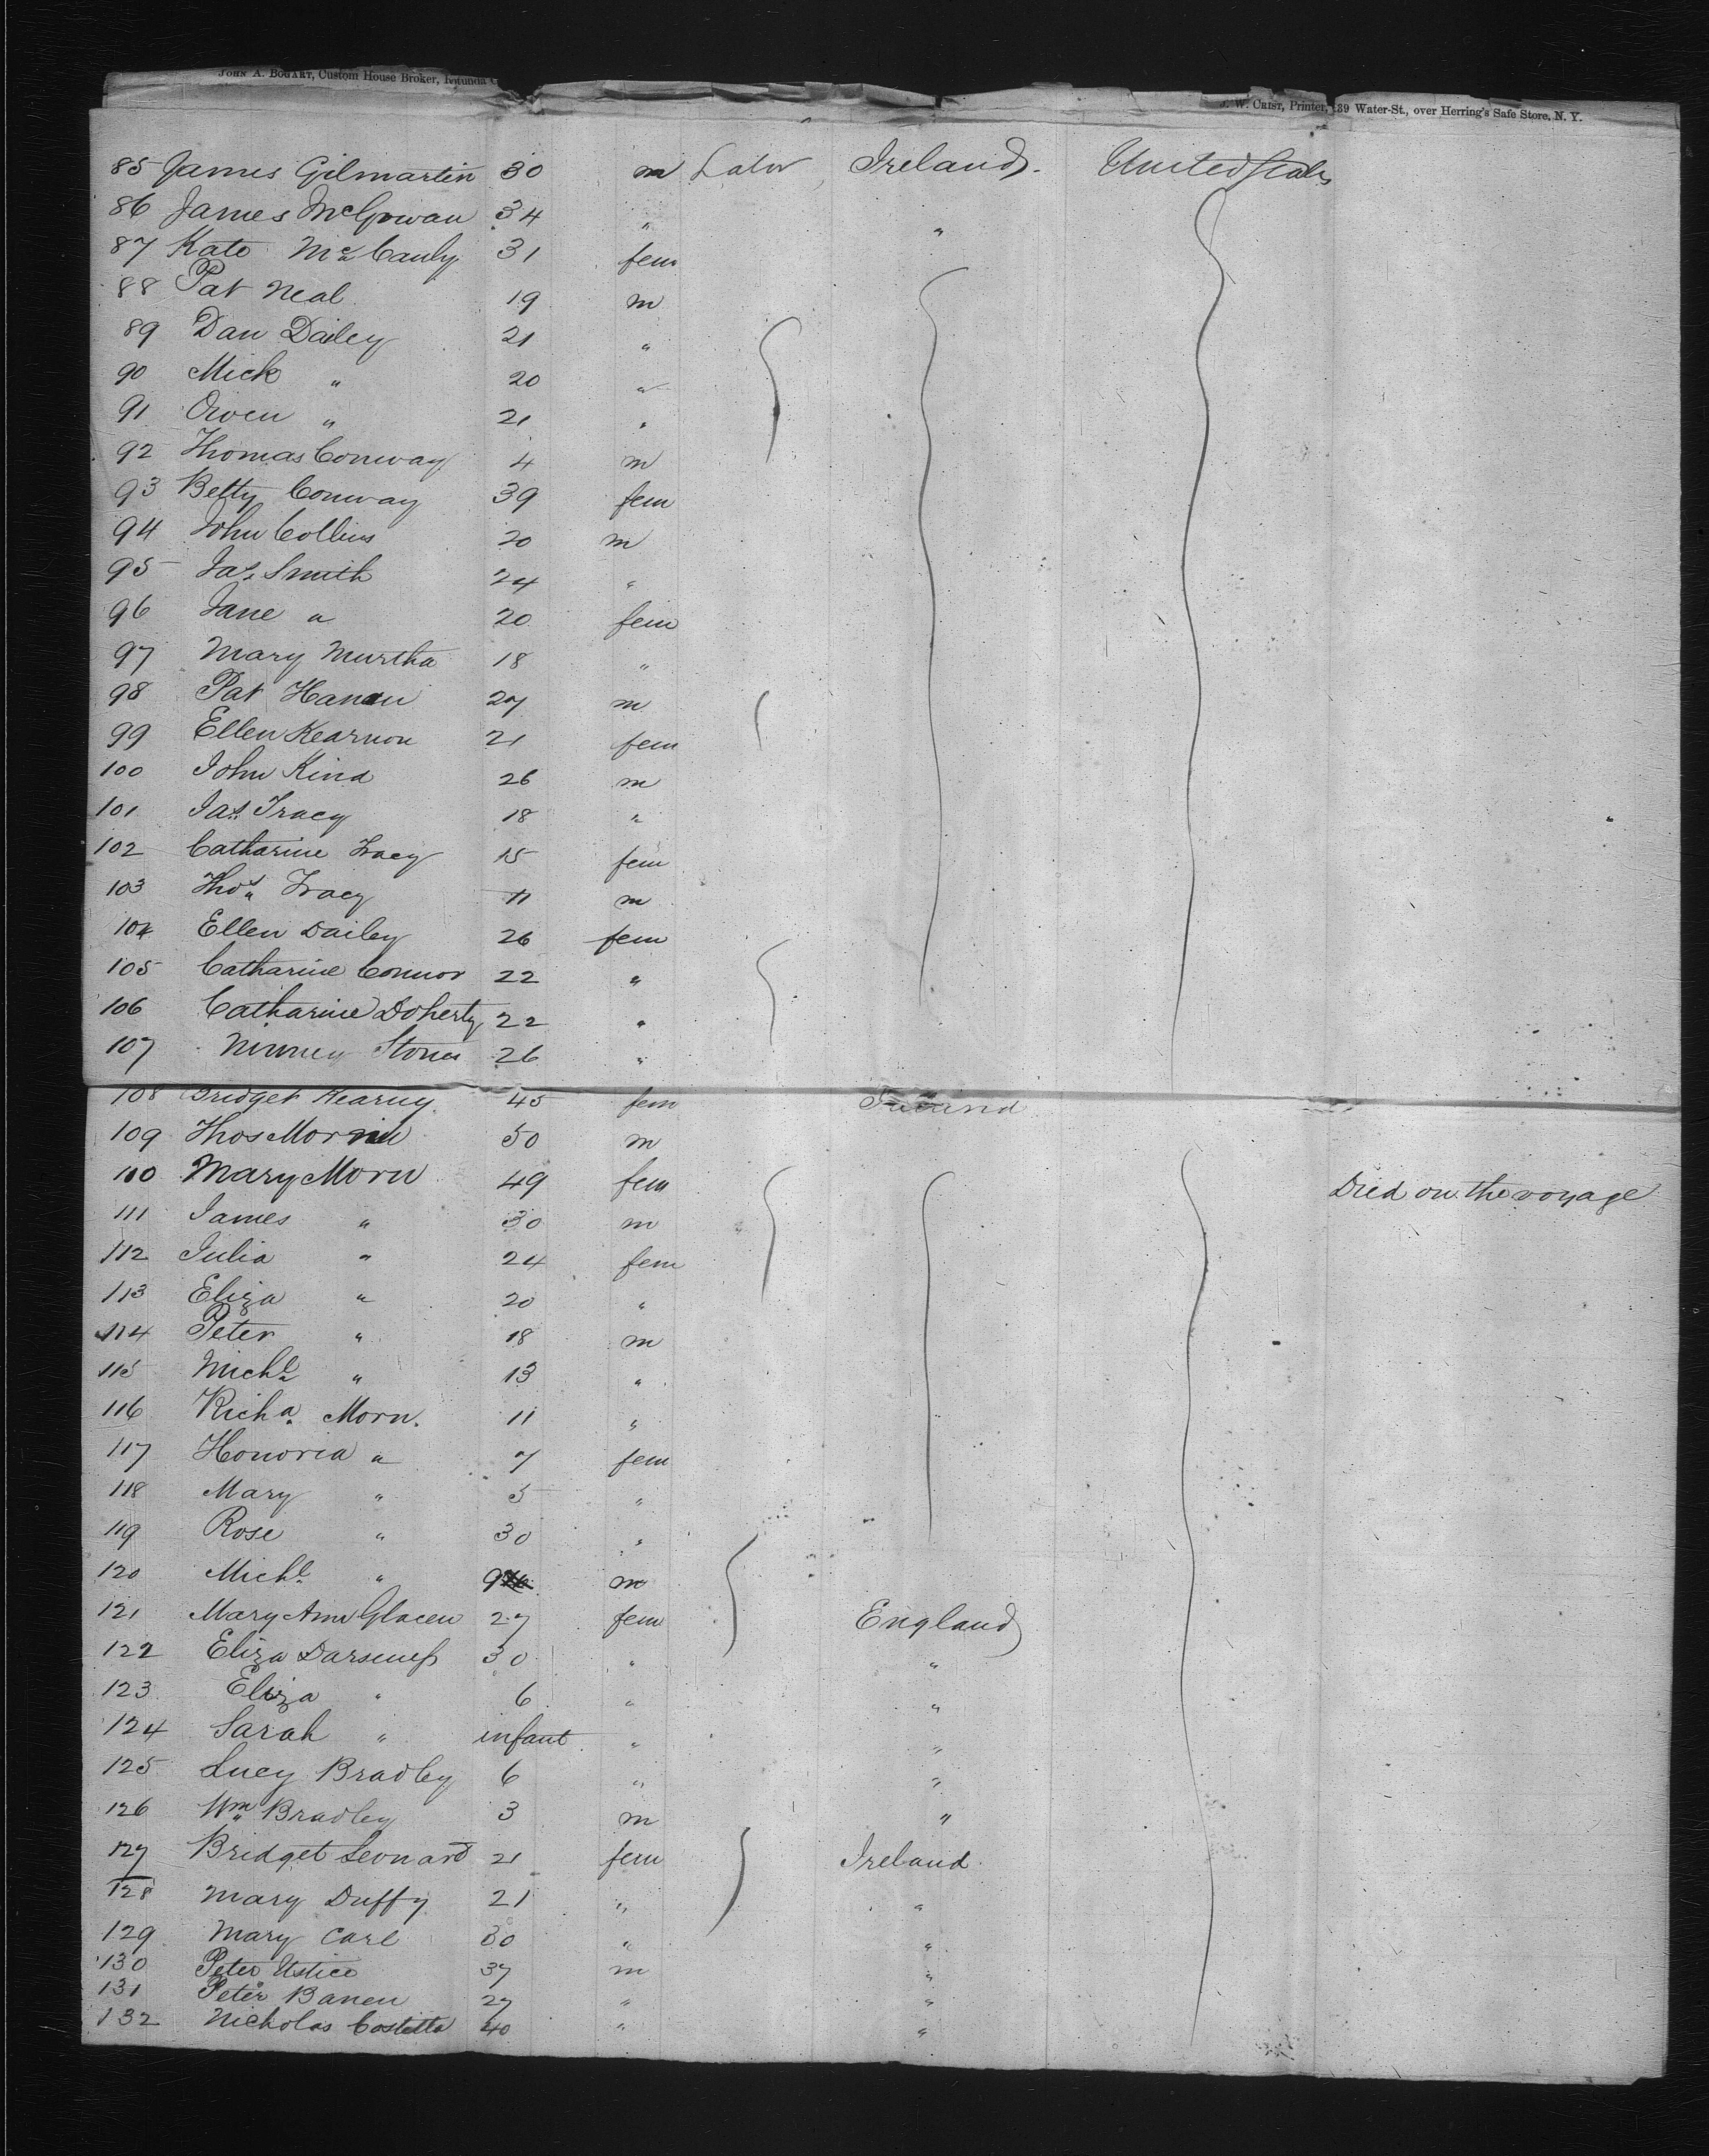 JOHN A. BOGART, Custom House Broker, Rotunda
J. W. CRIST, Printer, 139 Water-St., over Herring's Safe Store, N. Y.
85 James Gilmartin 30 m Labor Ireland. United States
86 James McGowan 34 " "
87 Kate Mc Cauly 31 fem
88 Pat Neal 19 m
89 Dan Dailey 21 "
90 Mick " 20 "
91 Owen " 21 "
92 Thomas Conway 4 m
93 Betty Conway 39 fem
94 John Collins 20 m
95 Jas Smith 24 "
96 Jane " 20 fem
97 Mary Murtha 18 "
98 Pat Hanan 27 m
99 Ellen Kearnon 21 fem
100 John Kind 26 m
101 Jas Tracy 18 "
102 Catharine Tracy 15 fem
103 Thos Tracy 11 m
104 Ellen Dailey 26 fem
105 Catharine Connor 22 "
106 Catharine Doherty 22 "
107 Stones 26 "
108 Bridget Kearny 45 fem
109 Thos 50 m
110 Mary Morn 49 fem Died on the voyage
111 James " 30 m
112 Julia " 24 fem
113 Eliza " 20 "
114 Peter " 18 m
115 Michl " 13 "
116 Richd Morn. 11 "
117 Honoria " 7 fem
118 Mary " 5 "
119 Rose " 30 "
120 Michl " 9 m
121 Mary Ann Glacen 27 fem England
122 Eliza 30 " "
123 Eliza " 6 " "
124 Sarah " infant " "
125 Lucy Bradley 6 " "
126 Wm Bradley 3 m "
127 Bridget Leonard 21 fem Ireland
128 Mary Duffy 21 " "
129 Mary Carl 30 " "
130 Peter Ustice 37 m "
131 Peter Banen 27 " "
132 Nicholas Costitta 40 " "